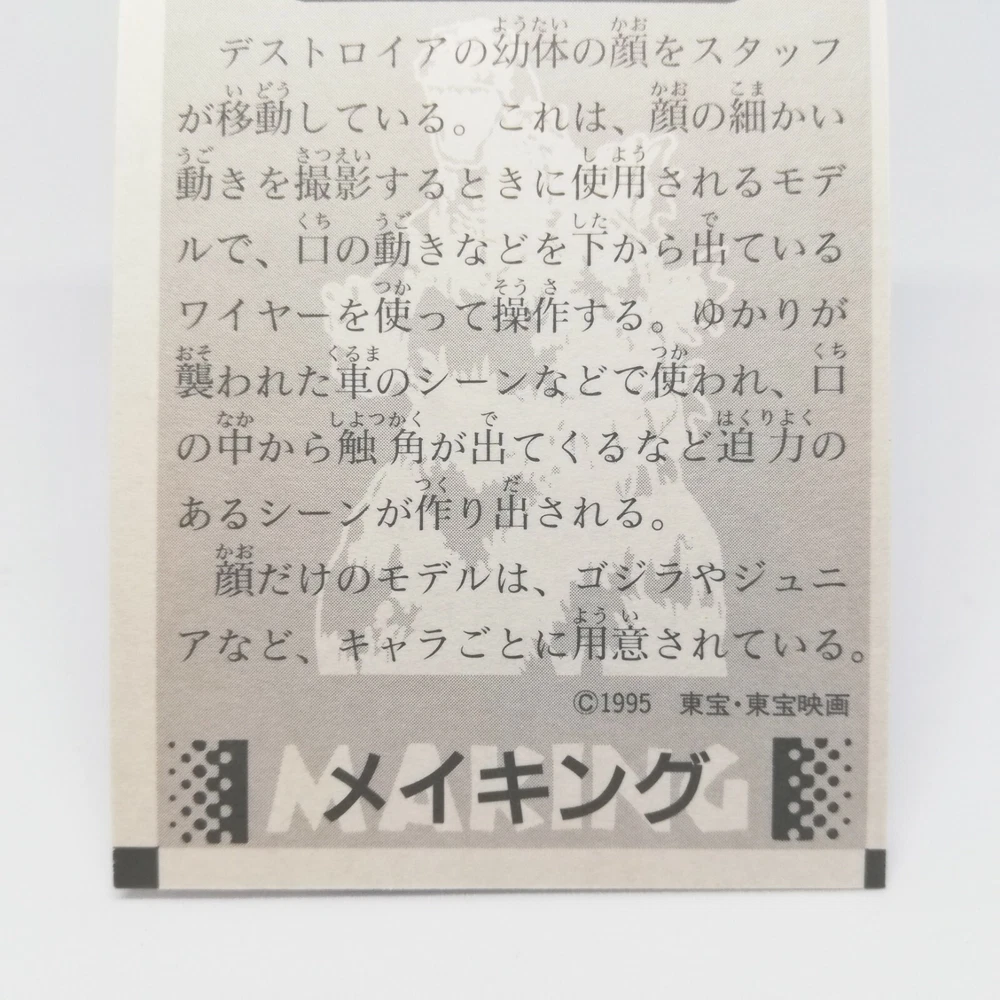 デストロイアの幼体の顔をスタッフ
が移動している。これは、顔の細かい
動きを撮影するときに使用されるモデ
ルで、口の動きなどを下から出ている
ワイヤーを使って操作する。ゆかりが
襲われた車のシーンなどで使われ、口
の中から触角が出てくるなど迫力の
あるシーンが作り出される。
顔だけのモデルは、ゴジラやジュニ
アなど、キャラごとに用意されている。
©1995 東宝・東宝映画
MAKING
メイキング